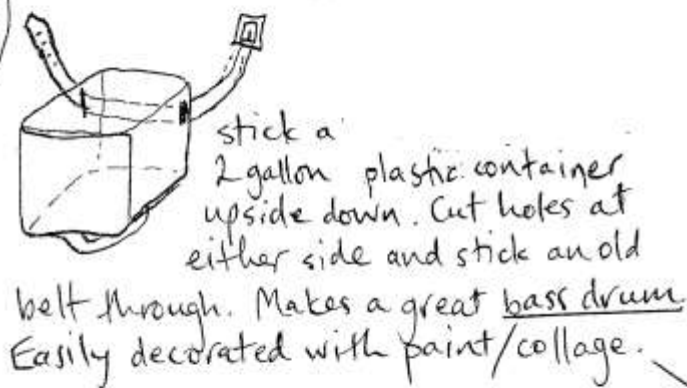 stick a
2 gallon plastic container
upside down. Cut holes at
either side and stick an old
belt through. Makes a great bass drum.
Easily decorated with paint/collage.